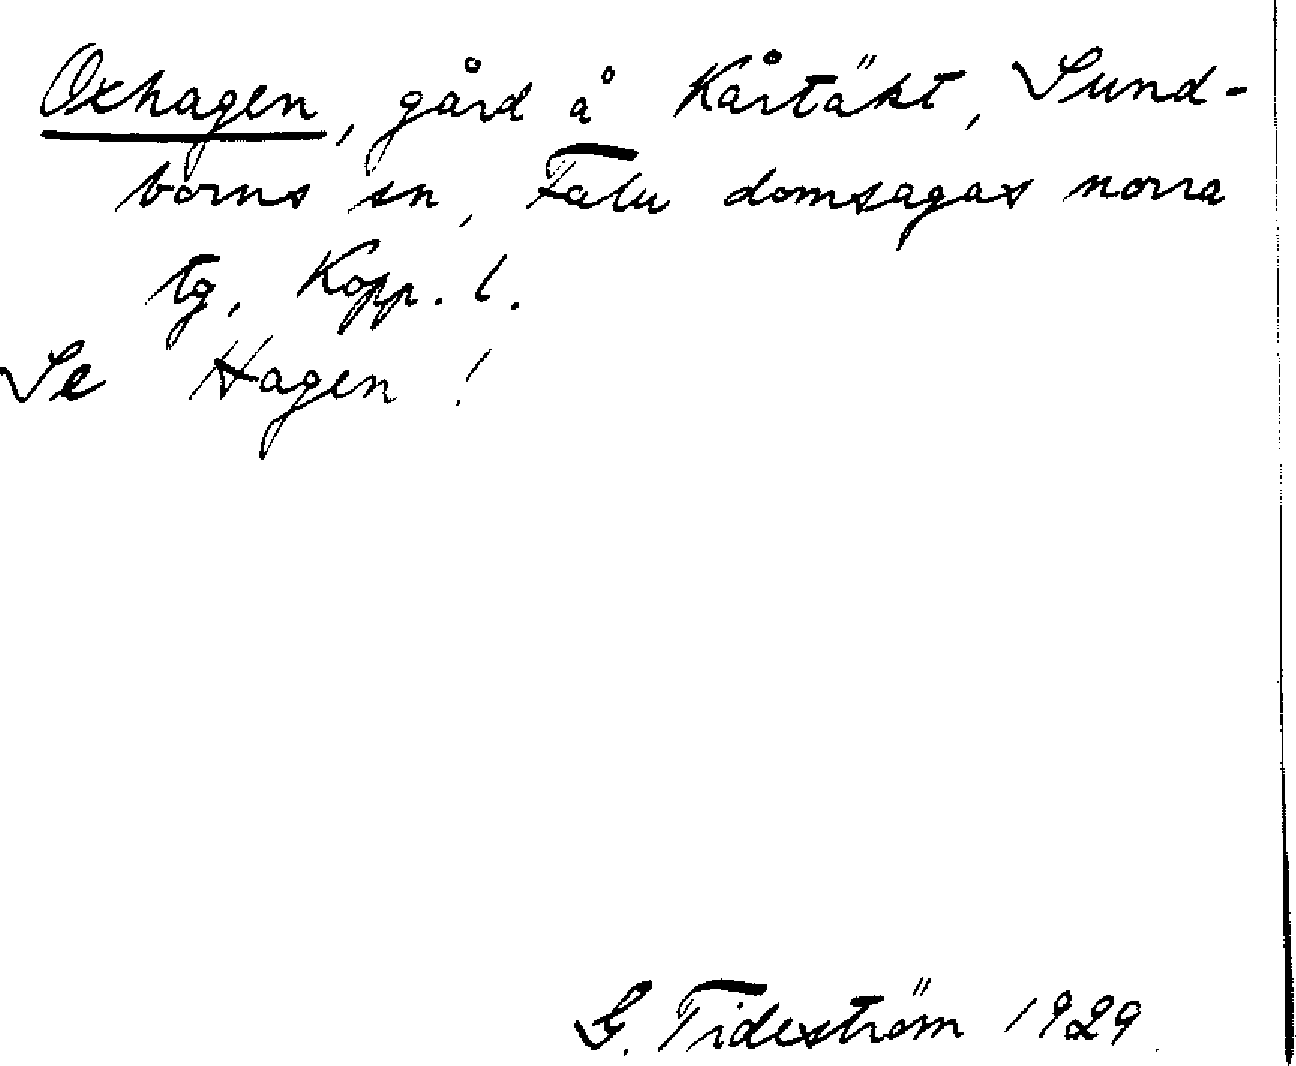 Oxhagen, gård å Kårtäkt, Sund-
borns sn, Falu domsagas norra
tg, Kopp. l.
Se Hagen!
G. Tideström 1929